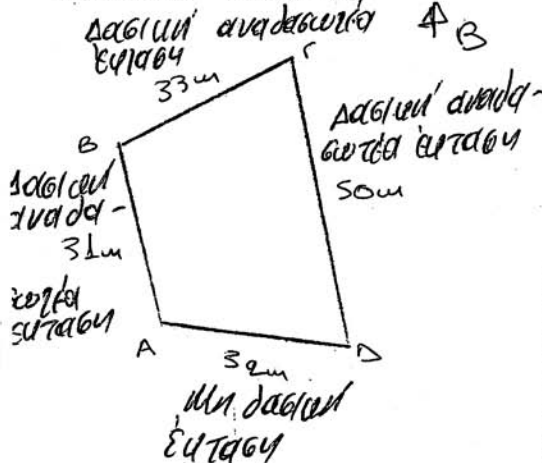 Δασική αναδασωτέα
έκταση
33m
Γ
Β
Β
Δασική αναδα-
σωτέα έκταση
50m
Δασική
αναδα-
31m
σωτέα
έκταση
Α
32m
D
Μη δασική
έκταση